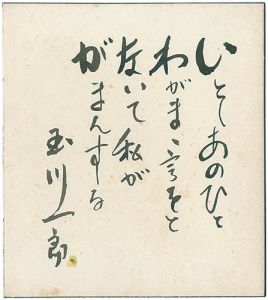 いとしあのひと
わがまゝ
ないて私が
がまんする
玉川一郎